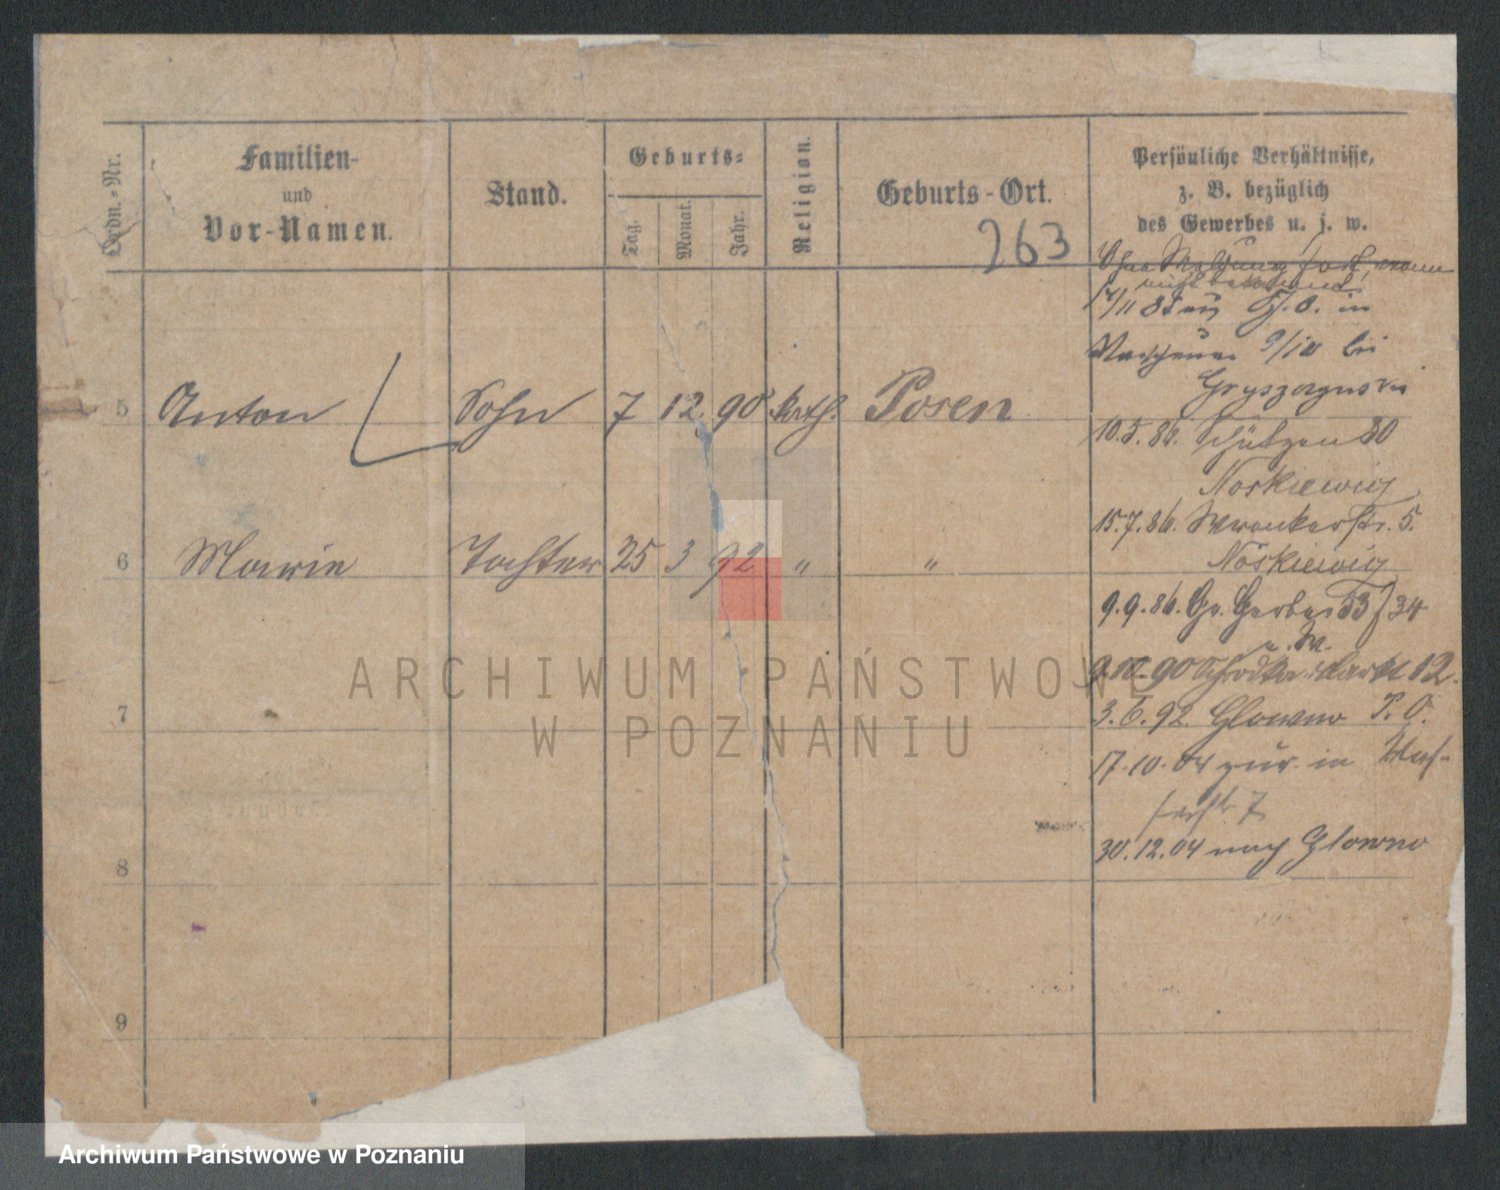 Ordn.-Nr.
Familien-
und
Vor-Namen.
Stand.
Geburts-
Tag.
Monat.
Jahr.
Religion.
Geburts-Ort.
263
Persönliche Verhältnisse,
z. B. bezüglich
des Gewerbes u. s. w.
Ohne Meldung fort, wann
nicht bekannt
5 Anton Sohn 7 12. 90 kath. Posen
6 Marie Tochter 25 3 92 " "
7
8
9
9/10 bei
10.5.86. Schützen 30
Noskiewicz
15.7.86. Wronkerstr. 5.
Noskiewicz
9.9.86. Gr. Gerber 53/34
u. W.
9.10.90 Schrodka Markt 12.
3.6.92. Glowno P. O.
17.10.04 zur. in
30.12.04 nach Glowno
ARCHIWUM PAŃSTWOWE
W POZNANIU
Archiwum Państwowe w Poznaniu